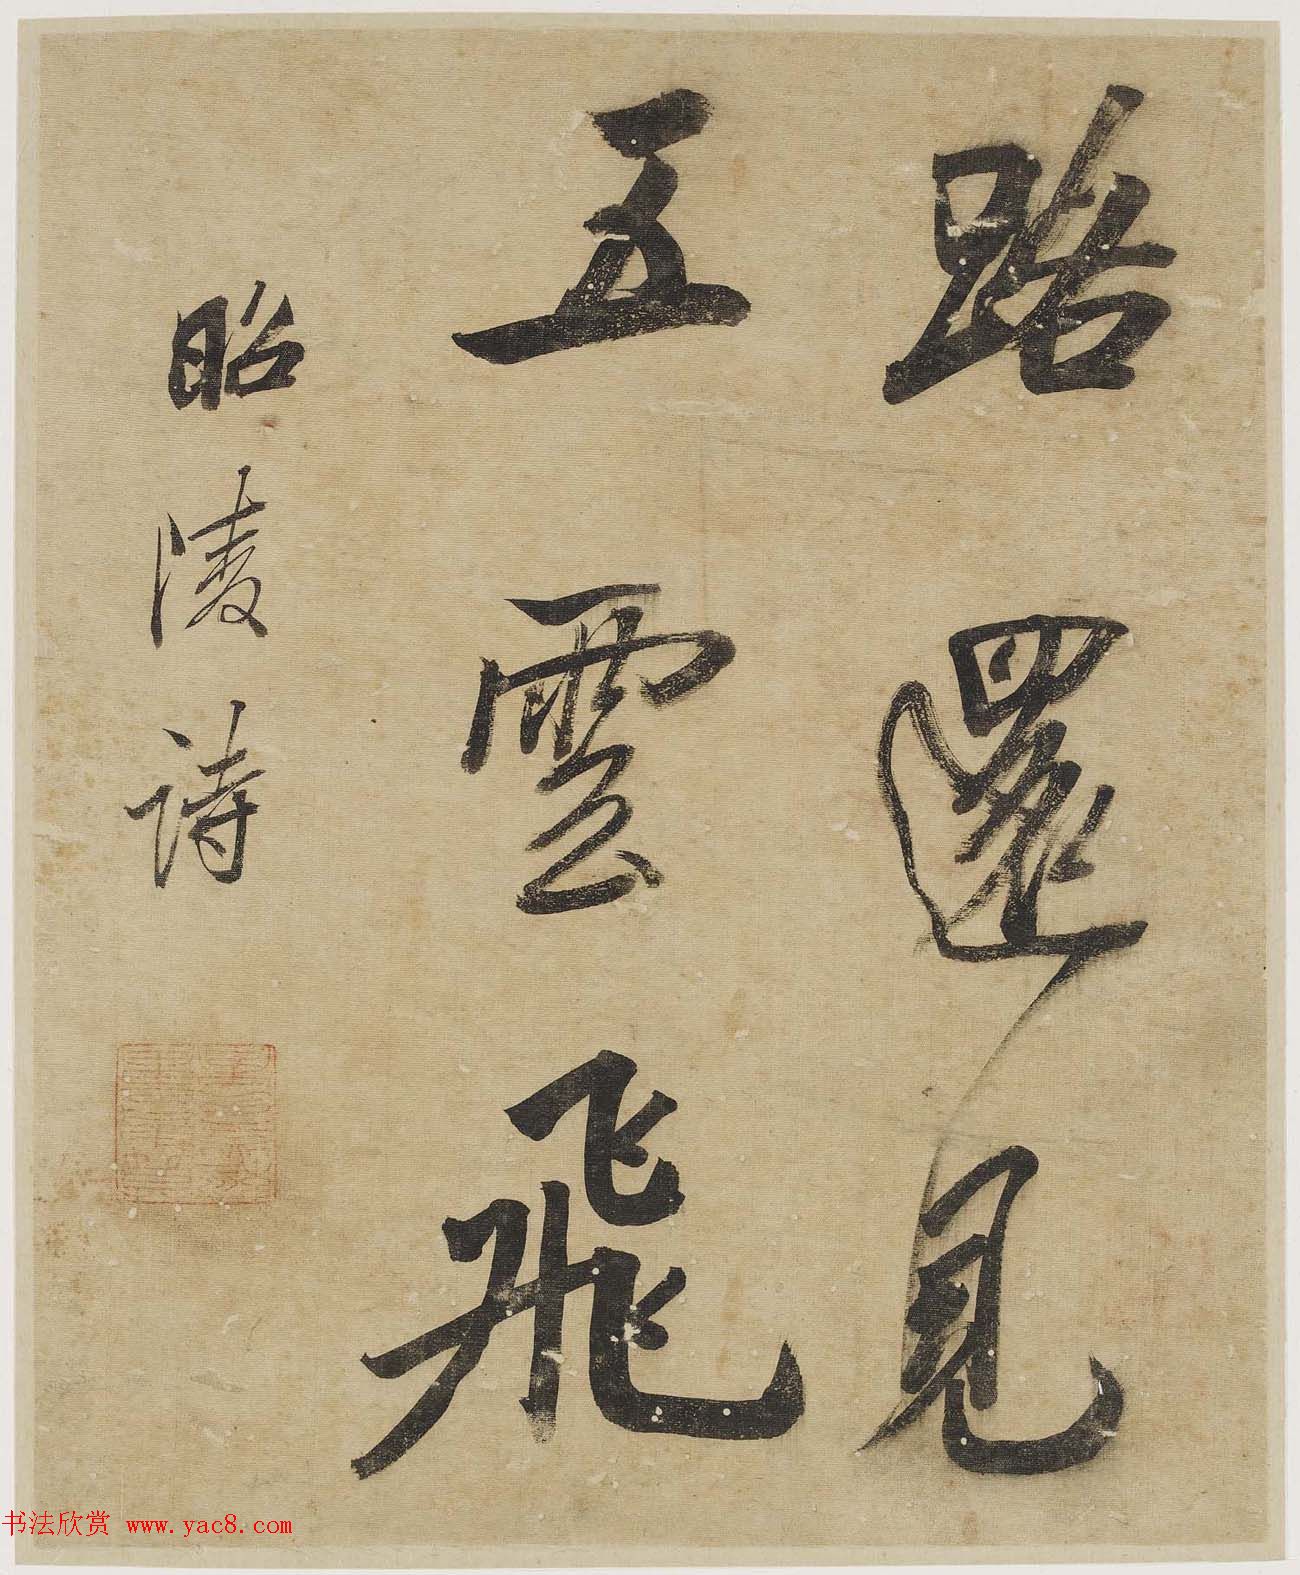 路還見
五雲飛
昭陵詩
书法欣赏 www.yac8.com